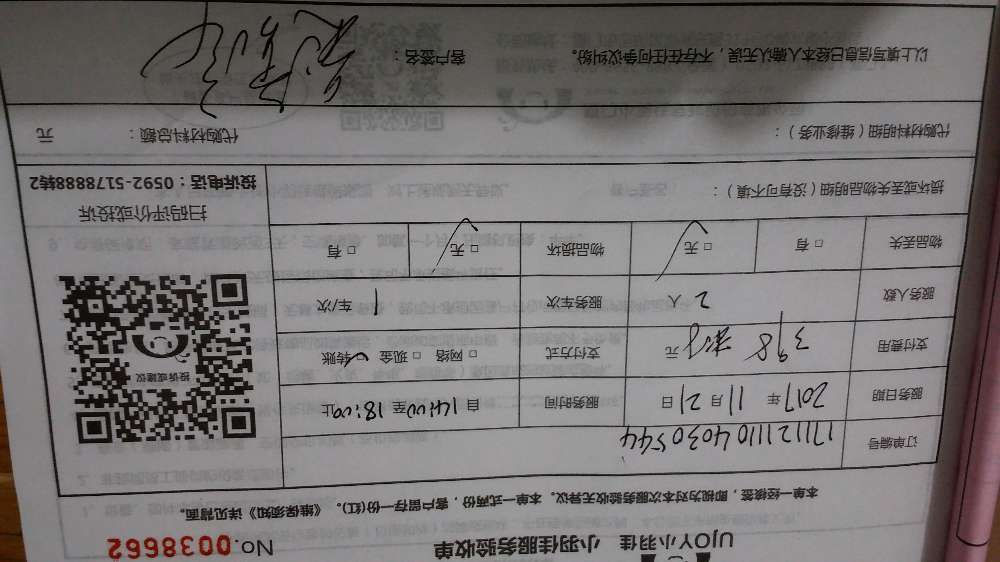 UJOY小羽佳 小羽佳服务验收单 No. 0038662
本单一经续签，即视为对本次服务验收无异议。本单一式两份，客户留存一份(红)。《维保须知》详见背面。
订单编号 1711211104030544
服务日期 2017 年 11 月 21 日 服务时间 自 14:00 至 18:00 止
支付费用 398 元 支付方式 □ 网络 □ 现金 转账
服务人数 2 人 服务车次 1 车/次
物品丢失 □ 有 □ 无 物品损坏 □ 无 □ 有
投诉或建议
扫码评价或投诉
投诉电话：0592-5178888转2
损坏或丢失物品明细（没有可不填）：
代购材料明细（维修业务）： 代购材料总额： 元
以上填写信息已经本人确认无误，不存在任何争议纠纷。 客户签名：